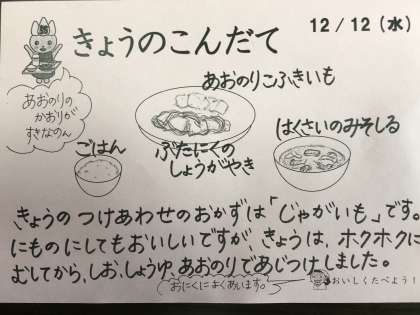 きょうのこんだて
12/12(水)
あおのりの
かおりが
すきなのん
あおのりこふきいも
ごはん
ぶたにくの
しょうがやき
はくさいのみそしる
きょうの つけあわせのおかずは「じゃがいも」です。
にものにしてもおいしいですが、きょうは、ホクホクに
むしてから、しお、しょうゆ、あおのりであじつけしました。
おにくによくあいます。
おいしくたべよう！